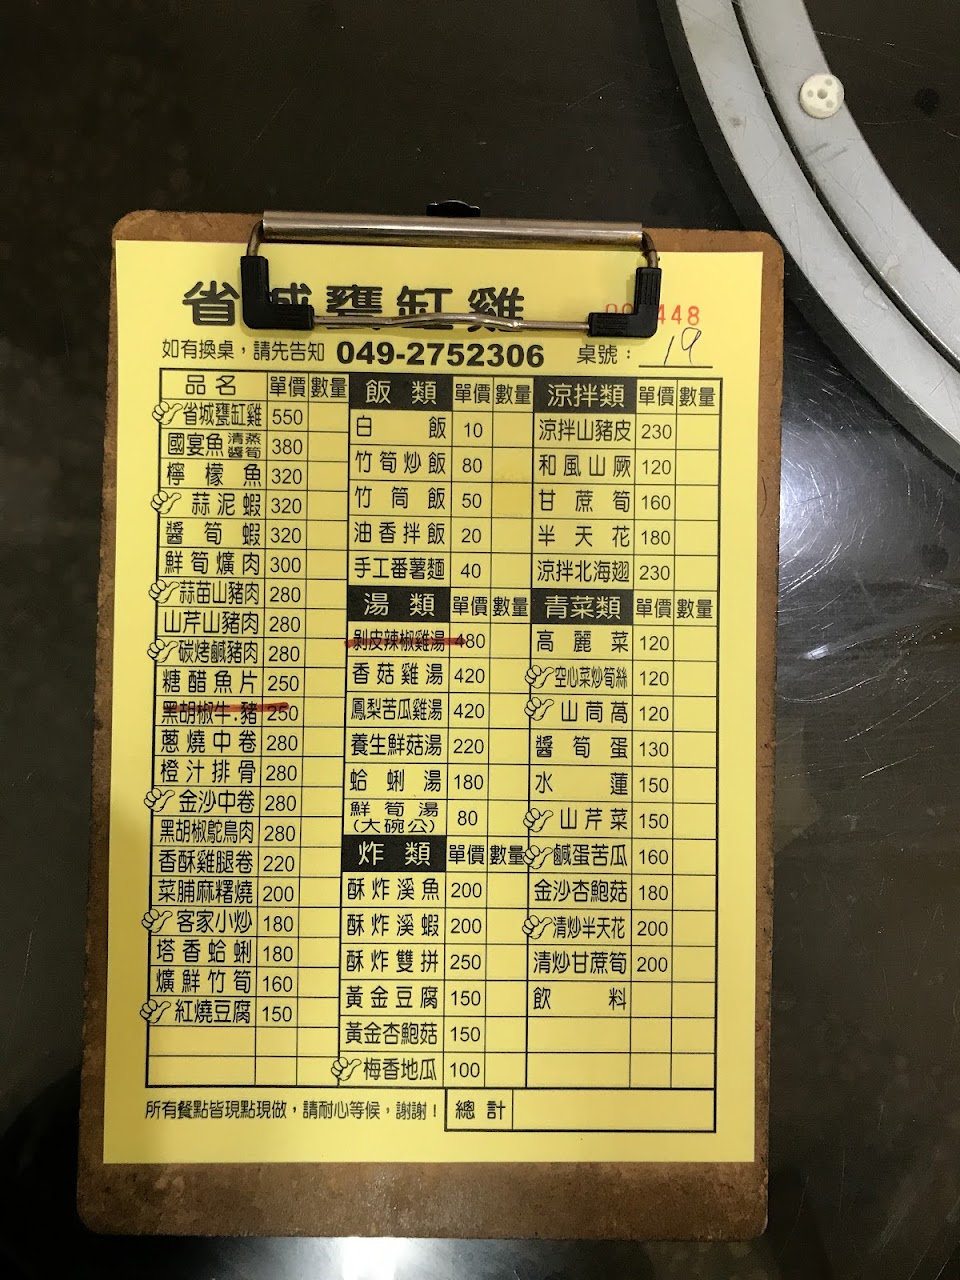 省城甕缸雞
448
如有換桌，請先告知 049-2752306 桌號：19
品名 單價 數量
省城甕缸雞 550
國宴魚 清蒸 醬筍 380
檸檬魚 320
蒜泥蝦 320
醬筍蝦 320
鮮筍爌肉 300
蒜苗山豬肉 280
山芹山豬肉 280
碳烤鹹豬肉 280
糖醋魚片 250
黑胡椒牛.豬 250
蔥燒中卷 280
橙汁排骨 280
金沙中卷 280
黑胡椒鴕鳥肉 280
香酥雞腿卷 220
菜脯麻糬燒 200
客家小炒 180
塔香蛤蜊 180
爌鮮竹筍 160
紅燒豆腐 150
飯類 單價 數量
白飯 10
竹筍炒飯 80
竹筒飯 50
油香拌飯 20
手工番薯麵 40
湯類 單價 數量
剝皮辣椒雞湯 480
香菇雞湯 420
鳳梨苦瓜雞湯 420
養生鮮菇湯 220
蛤蜊湯 180
鮮筍湯 (大碗公) 80
炸類 單價 數量
酥炸溪魚 200
酥炸溪蝦 200
酥炸雙拼 250
黃金豆腐 150
黃金杏鮑菇 150
梅香地瓜 100
涼拌類 單價 數量
涼拌山豬皮 230
和風山厥 120
甘蔗筍 160
半天花 180
涼拌北海翅 230
青菜類 單價 數量
高麗菜 120
空心菜炒筍絲 120
山茼萵 120
醬筍蛋 130
水蓮 150
山芹菜 150
鹹蛋苦瓜 160
金沙杏鮑菇 180
清炒半天花 200
清炒甘蔗筍 200
飲料
所有餐點皆現點現做，請耐心等候，謝謝！ 總計